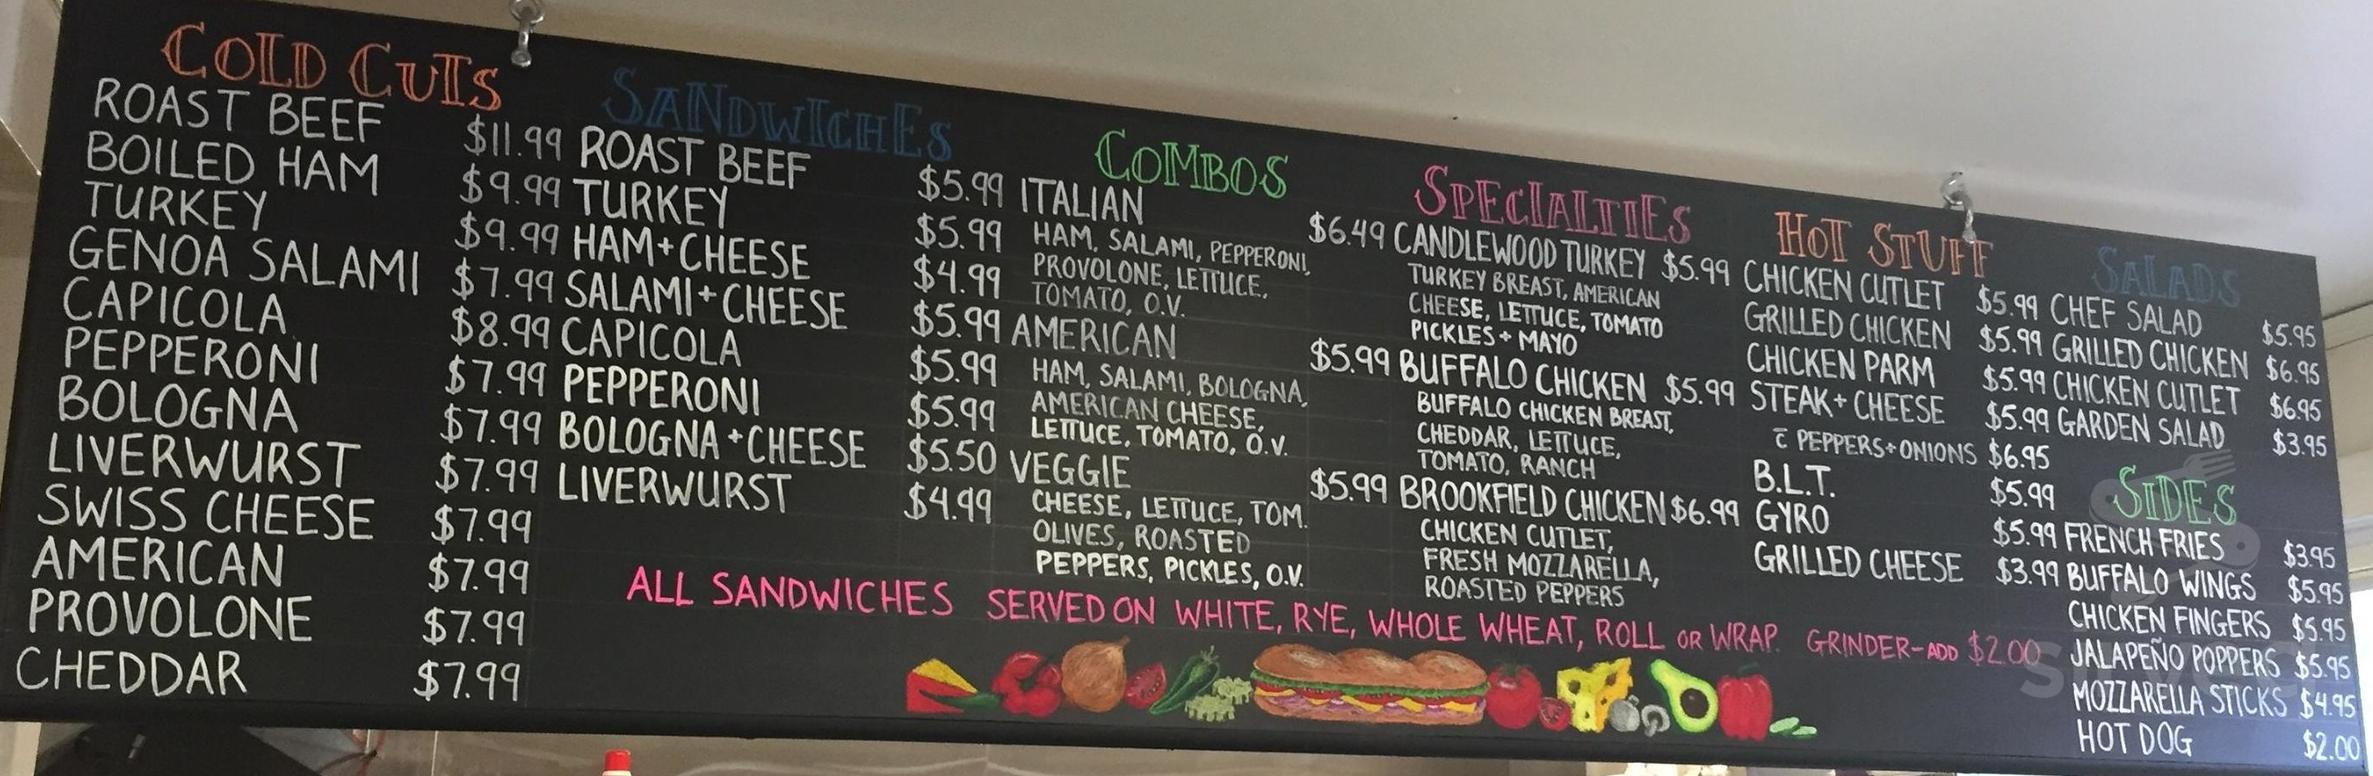 COLD CUTS
ROAST BEEF $11.99
BOILED HAM $9.99
TURKEY $9.99
GENOA SALAMI $7.99
CAPICOLA $8.99
PEPPERONI $7.99
BOLOGNA $7.99
LIVERWURST $7.99
SWISS CHEESE $7.99
AMERICAN $7.99
PROVOLONE $7.99
CHEDDAR $7.99
SANDWICHES
ROAST BEEF $5.99
TURKEY $5.99
HAM+CHEESE $4.99
SALAMI+CHEESE $5.99
CAPICOLA $5.99
PEPPERONI $5.99
BOLOGNA+CHEESE $5.50
LIVERWURST $4.99
COMBOS
ITALIAN $6.49
HAM, SALAMI, PEPPERONI,
PROVOLONE, LETTUCE,
TOMATO, O.V.
AMERICAN $5.99
HAM, SALAMI, BOLOGNA,
AMERICAN CHEESE,
LETTUCE, TOMATO, O.V.
VEGGIE $5.99
CHEESE, LETTUCE, TOM.
OLIVES, ROASTED
PEPPERS, PICKLES, O.V.
SPECIALTIES
CANDLEWOOD TURKEY $5.99
TURKEY BREAST, AMERICAN
CHEESE, LETTUCE, TOMATO
PICKLES+MAYO
BUFFALO CHICKEN $5.99
BUFFALO CHICKEN BREAST,
CHEDDAR, LETTUCE,
TOMATO, RANCH
BROOKFIELD CHICKEN $6.99
CHICKEN CUTLET,
FRESH MOZZARELLA,
ROASTED PEPPERS
HOT STUFF
CHICKEN CUTLET $5.99
GRILLED CHICKEN $5.99
CHICKEN PARM $5.99
STEAK+CHEESE $5.99
c̄ PEPPERS+ONIONS $6.95
B.L.T. $5.99
GYRO $5.99
GRILLED CHEESE $3.99
SALADS
CHEF SALAD $5.95
GRILLED CHICKEN $6.95
CHICKEN CUTLET $6.95
GARDEN SALAD $3.95
SIDES
FRENCH FRIES $3.95
BUFFALO WINGS $5.95
CHICKEN FINGERS $5.95
JALAPEÑO POPPERS $5.95
MOZZARELLA STICKS $4.95
HOT DOG $2.00
ALL SANDWICHES SERVED ON WHITE, RYE, WHOLE WHEAT, ROLL OR WRAP. GRINDER-ADD $2.00